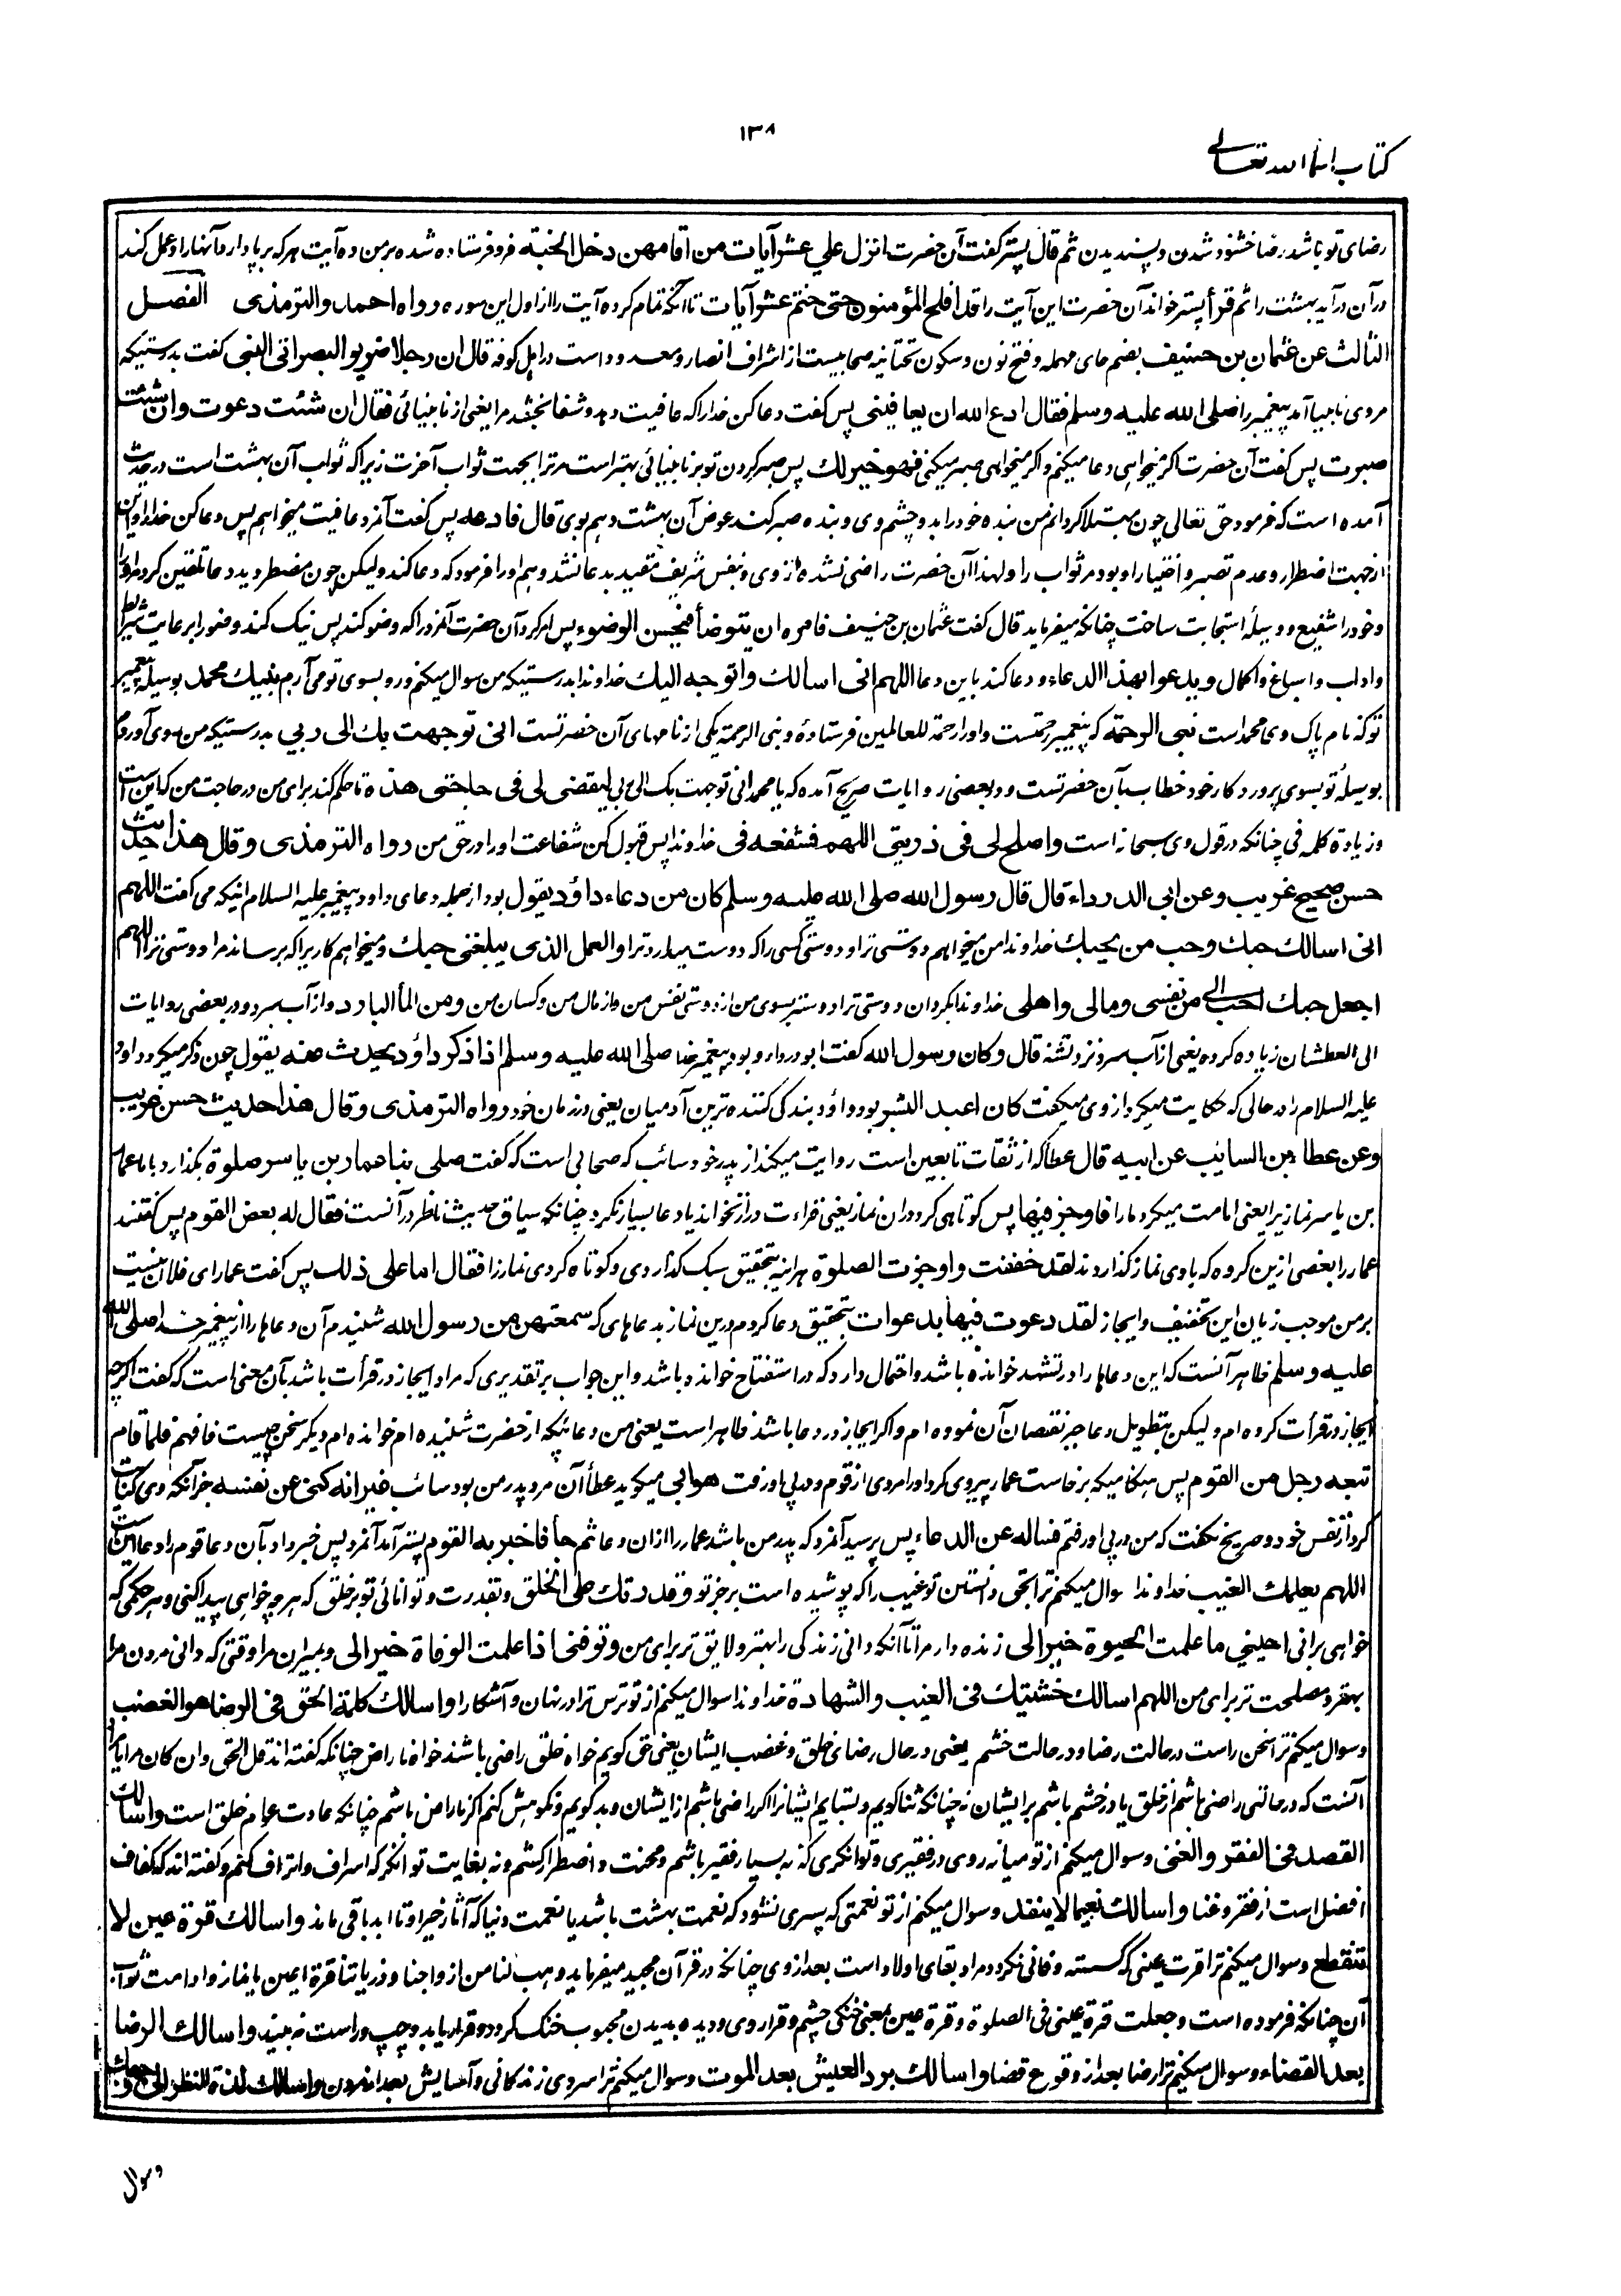 ۱۳۸
کتاب اسماء الله تعالی
رضای تو باشد رضا خشنود شدن و پسندیدن ثم قال پستر گفت آن حضرت انزل علی عشر آیات من اقامهن دخل الجنة فرو فرستاده شده بر من ده آیت هر که برپا دارد آنها را و عمل کند
در آن در آید بهشت را ثم قرأ پستر خواند آن حضرت این آیت را قد افلح المؤمنون حتی ختم عشر آیات تا آنکه تمام کرد ده آیت را از اول این سوره رواه احمد والترمذی الفصل
الثالث عن عثمان بن حنیف بضم حای مهمله و فتح نون و سکون تحتانیه صحابیست از اشراف انصار و معدود است در اهل کوفه قال ان رجلا ضریر البصر اتی النبی گفت بدرستیکه
مردی نابینا آمد پیغمبر را صلی الله علیه وسلم فقال ادع الله ان یعافینی پس گفت دعا کن خدا را که عافیت دهد و شفا بخشد مرا یعنی از نابینائی فقال ان شئت دعوت وان شئت
صبرت پس گفت آن حضرت اگر میخواهی دعا میکنم و اگر میخواهی صبر میکنی فهو خیر لك پس صبر کردن تو بر نابینائی بهتر است مر ترا بجهت ثواب آخرت زیرا که ثواب آن بهشت است در حدیث
آمده است که فرمود حق تعالی چون مبتلا گردانم من بنده خود را بدو چشم وی و بنده صبر کند عوض آن بهشت دهم بوی قال فادعه پس گفت آنمرد عافیت میخواهم پس دعا کن خدا را و این
از جهت اضطرار و عدم تصبر و اختیار او بود مر ثواب را و لهذا آن حضرت راضی نشده از وی و بنفس شریف مقید بدعا نشد و هم او را فرمود که دعا کند ولیکن چون مضطر دید دعا تلقین کرد او را
و خود را شفیع و وسیلهٔ استجابت ساخت چنانکه میفرماید قال گفت عثمان بن حنیف فامره ان یتوضأ فیحسن الوضوء پس امر کرد آن حضرت آنمرد را که وضو کند پس نیک کند وضو را برعایت شرائط
و اداب و اسباغ و اکمال ویدعو بهذا الدعاء و دعا کند باین دعا اللهم انی اسالك واتوجه الیك خداوندا بدرستیکه من سوال میکنم و رو بسوی تو می آرم بنبیك محمد بوسیله پیغمبر
تو که نام پاک وی محمد است نبی الرحمة که پیغمبر رحمتست و او را رحمة للعالمین فرستادهٔ و نبی الرحمة یکی از نامهای آن حضرتست انی توجهت بك الی ربی بدرستیکه من روی آوردم
بوسیلهٔ تو بسوی پروردگار خود خطاب بآن حضرتست و در بعضی روایات صریح آمده که یا محمد انی توجهت بک الی ربی لیقضی لی فی حاجتی هذه تا حکم کند برای من در حاجت من که این است
و زیادة کلمه فی چنانکه در قول وی سبحانه است واصلح لی فی ذریتی اللهم فشفعه فی خداوندا پس قبول کن شفاعت او را در حق من رواه الترمذی وقال هذا حدیث
حسن صحیح غریب وعن ابی الدرداء قال قال رسول الله صلی الله علیه وسلم کان من دعاء داؤد یقول بود از جمله دعای داود پیغمبر علیه السلام اینکه می گفت اللهم
انی اسالك حبك وحب من یحبك خداوندا من میخواهم دوستی ترا و دوستی کسی را که دوست میدارد ترا والعمل الذی یبلغنی حبك و میخواهم کاریرا که برساند مرا دوستی ترا اللهم
اجعل حبك احب الی من نفسی ومالی واهلی خداوندا بگردان دوستی ترا دوستتر بسوی من از دوستی نفس من و از مال من و کسان من ومن الماء البارد و از آب سرد و در بعضی روایات
الی العطشان زیاده کرده یعنی از آب سرد نزد تشنه قال وکان رسول الله گفت ابو درداء و بود پیغمبر خدا صلی الله علیه وسلم اذا ذکر داؤد یحدث عنه یقول چون ذکر میکرد داود
علیه السلام را در حالی که حکایت میکرد از وی میگفت کان اعبد البشر بود داؤد بندگی کننده ترین آدمیان یعنی در زمان خود رواه الترمذی وقال هذا حدیث حسن غریب
وعن عطاء بن السائب عن ابیه قال عطا که از ثقات تابعین است روایت میکند از پدر خود سائب که صحابی است که گفت صلی بنا عمار بن یاسر صلوة بگذارد با ما عمار
بن یاسر نمازیرا یعنی امامت میکرد ما را فاوجز فیها پس کوتاهی کرد در ان نماز یعنی قراءت دراز نخواند یا دعا بسیار نکرد چنانکه سیاق حدیث ناظر در آنست فقال له بعض القوم پس گفتند
عمار را بعضی ازین گروه که با وی نماز گذاردند لقد خففت واوجزت الصلوة هر اینه بتحقیق سبک گذاردی و کوتاه کردی نماز را فقال اما علی ذلك پس گفت عمار ای فلان نیست
بر من موجب زیان این تخفیف و ایجاز لقد دعوت فیها بدعوات بتحقیق دعا کردم درین نماز بدعاهای که سمعتهن من رسول الله شنیدم آن دعاها را از پیغمبر خدا صلی الله
علیه وسلم ظاهر آنست که این دعاها را در تشهد خوانده باشد و احتمال دارد که در استفتاح خوانده باشد و این جواب بر تقدیری که مراد ایجاز در قرأت باشد بآن معنی است که گفت اگرچه
ایجاز در قرأت کرده ام و لیکن بتطویل دعا جبر نقصان آن نموده ام و اگر ایجاز در دعا باشد ظاهر است یعنی من دعائیکه از حضرت شنیده ام خوانده ام دیگر سخن چیست فافهم فلما قام
تبعه رجل من القوم پس هنگامیکه برخاست عمار پیروی کرد او را مردی از قوم و در پی او رفت هو ابی میگوید عطا آن مرد پدر من بود سائب غیر انه کنی عن نفسه جز آنکه وی کنایت
کرد از نفس خود و صریح نگفت که من در پی او رفتم فساله عن الدعاء پس پرسید آنمرد که پدر من باشد عمار را ازان دعا ثم جاء فاخبر به القوم پستر آمد آنمرد پس خبر داد بآن دعا قوم را و دعا این است
اللهم بعلمك الغیب خداوندا سوال میکنم ترا بحق دانستن تو غیب را که پوشیده است بر جز تو وقدرتك علی الخلق و بقدرت و توانائی تو بر خلق که هر چه خواهی پیدا کنی و هر حکمی که
خواهی برانی احینی ما علمت الحیوة خیرا لی زنده دار مرا تا آنکه دانی زندگی را بهتر و لایق تر برای من وتوفنی اذا علمت الوفاة خیرا لی و بمیران مرا وقتی که دانی مردن مرا
بهتر و مصلحت تر برای من اللهم اسالك خشیتك فی الغیب والشهادة خداوندا سوال میکنم از تو ترس ترا در نهان و آشکارا واسالك کلمة الحق فی الرضا والغضب
و سوال میکنم ترا سخن راست در حالت رضا و در حالت خشم یعنی در حال رضای خلق و غضب ایشان یعنی حق گویم خواه خلق راضی باشند خواه ناراض چنانکه گفته اند قل الحق وان کان مرا یا مراد
آنست که در حالتی راضی باشم از خلق یا در خشم باشم بر ایشان نه چنانکه ثنا گویم و بستایم ایشانرا اگر راضی باشم از ایشان و بد گویم و نکوهش کنم اگر ناراض باشم چنانکه عادت عوام خلق است واسالك
القصد فی الفقر والغنی و سوال میکنم از تو میانه روی در فقیری و توانگری که نه بسیار فقیر باشم و محنت و اضطرار کشم و نه بغایت توانگر که اسراف و اتراف کنم و گفته اند که کفاف
افضل است از فقر و غنا واسالك نعیما لا ینفد و سوال میکنم از تو نعمتی که سپری نشود که نعمت بهشت باشد یا نعمت دنیا که آثار خیر او تا ابد باقی ماند واسالك قرة عین لا
تنقطع و سوال میکنم ترا قرت عینی که گسسته و فانی نگردد مراد بقای اولاد است بعد از وی چنانکه در قرآن مجید میفرماید وهب لنا من ازواجنا وذریاتنا قرة اعین یا نماز و ادامت ثواب
آن چنانکه فرموده است وجعلت قرة عینی فی الصلوة و قرة عین بمعنی خنکی چشم و قرار وی و دیده بدیدن محبوب خنک گردد و قرار یابد و چپ و راست نه بیند واسالك الرضا
بعد القضاء و سوال میکنم ترا رضا بعد از وقوع قضا واسالك برد العیش بعد الموت و سوال میکنم ترا سردی زندگانی و آسایش بعد از مردن واسالك لذة النظر الی وجهك
و سوال